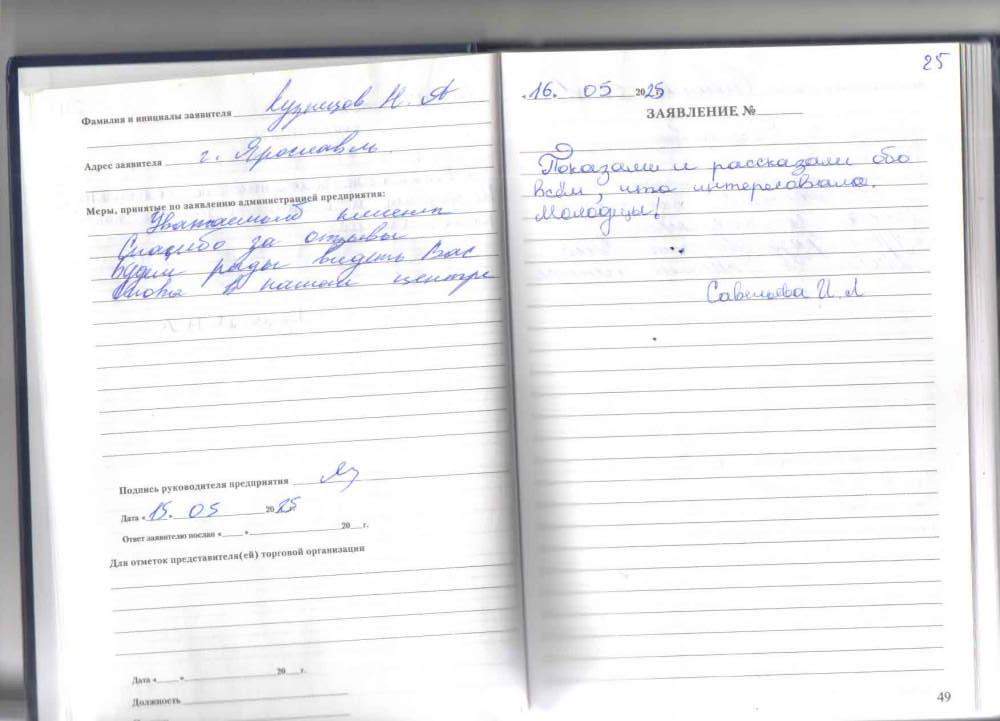 Фамилия и инициалы заявителя Кузнецов Н. А
Адрес заявителя г. Ярославль
Меры, принятые по заявлению администрацией предприятия:
Уважаемый клиент
Спасибо за отзывы
Будем рады видеть Вас
снова в нашем центре
Подпись руководителя предприятия
Дата « 15. 05 2025
Ответ заявителю послан «____» ____ 20__ г.
Для отметок представителя(ей) торговой организации
Дата «____» ____ 20__ г.
Должность
25
«16. 05 2025
ЗАЯВЛЕНИЕ №
Показали и рассказали обо
всём, что интересовало.
Молодцы!
Савельева И. Л
49